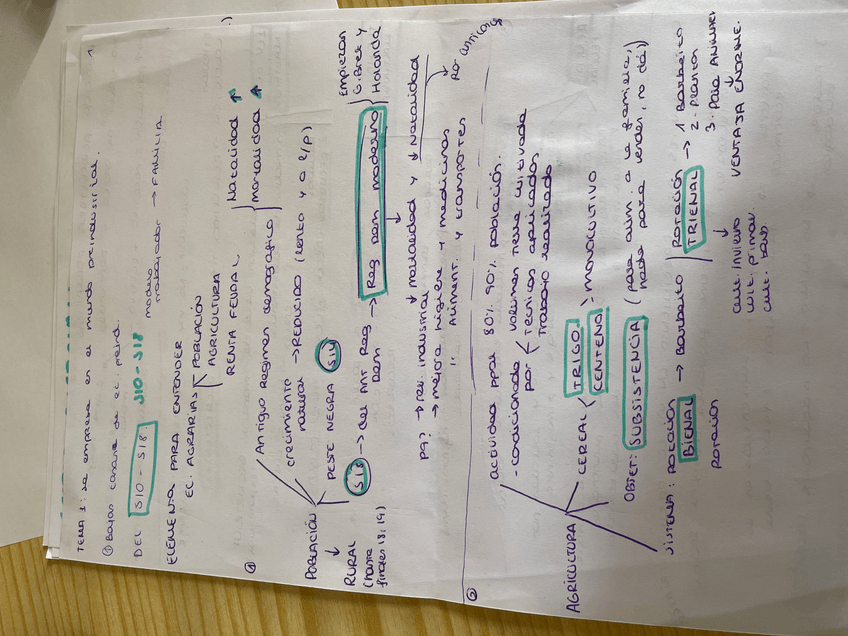 TEMA 1: la empresa en el mundo preindustrial.
① Bajos ec. preind.
DEL S10-S18 S10-S18
modelo trabajador → FAMILIA
ELEMENTOS PARA ENTENDER
EC. AGRARIAS POBLACIÓN
AGRICULTURA
RENTA FEUDAL
①
POBLACIÓN
↓
RURAL
(hasta
finales 18, 19)
Antiguo Regimen demográfico
Natalidad ↑
mortalidad ↑
crecimiento natural → REDUCIDO (lento y a l/p)
PESTE NEGRA S14
S18 → del ANT Reg Dem → Reg Dem moderno
Empiezan
G. Bret y
Holanda
↓ mortalidad y ↓ Natalidad
pq? → rev. industrial
→ mejora higiene y medicinas
" Aliment. y transportes
②
AGRICULTURA
actividad ppal 80% 90% población.
- condicionada por
volumen tierra cultivada
técnicas aplicadas
trabajo realizado
CEREAL
TRIGO
CENTENO
MONOCULTIVO
OBJET: SUBSISTENCIA (para alim. a la familia,
nada para vender, no dá)
SISTEMA: ROTACIÓN → Barbecho
BIENAL
ROTACIÓN
ROTACIÓN → 1 Barbecho
TRIENAL
2.
3. Para ANIMALES
↓
VENTAJA ENORME.
cult. invierno
cult. primav.
cult.